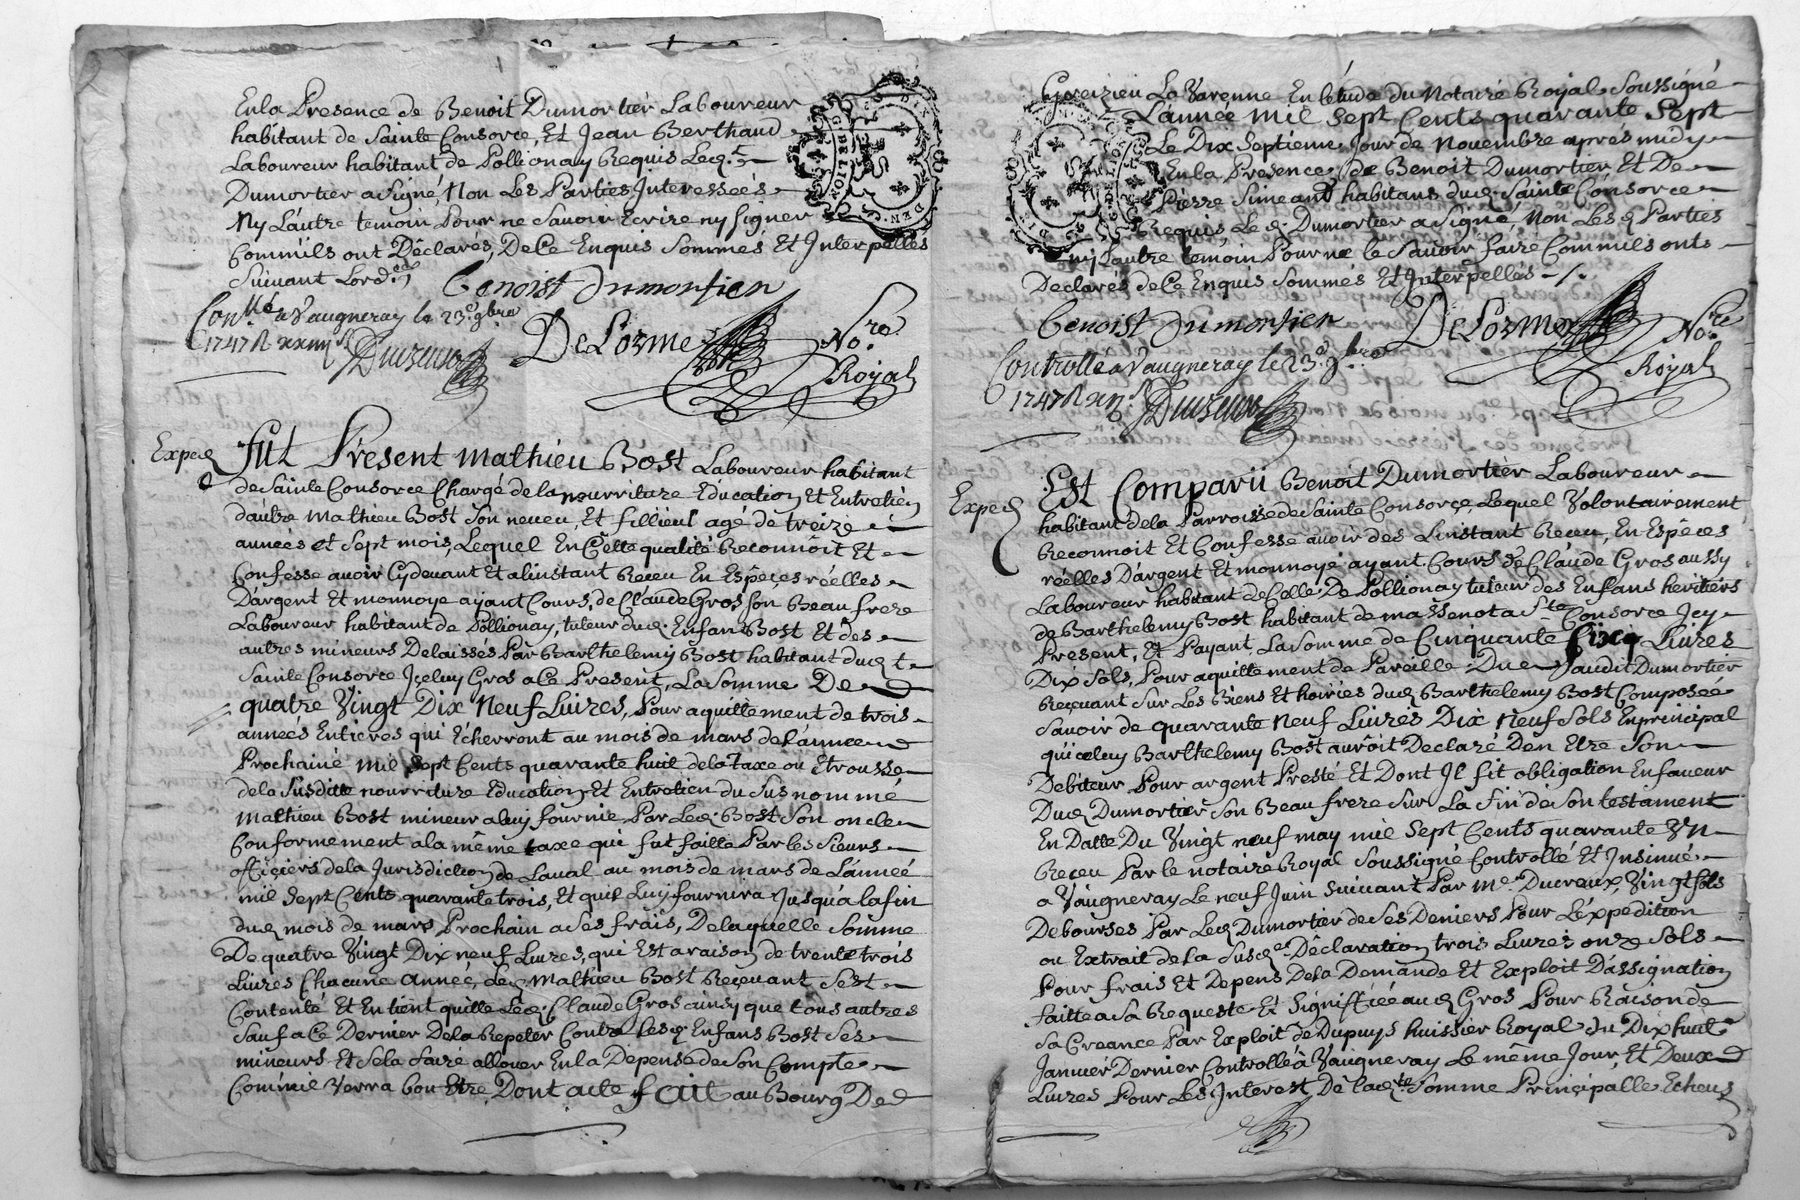 En la Presence de Benoit Dumortier Laboureur
habitant de Sainte Consorce, Et Jean Berthaud
Laboureur habitant de Pollionay Requis Led.
Dumortier a signé, Non Les Parties Interessées
Ny L'autre temoin Pour ne Savoir Ecrire ny signer
Comm'ils ont Déclarés, De Ce Enquis Sommés Et Interpellés
Suivant Lord.
Benoist Dumortier
à Vaugneray le 23e 9bre
1747
DeLorme No.re
Royal
Exped
Fut Present Mathieu Bost Laboureur habitant
de Sainte Consorce Chargé de la nourriture Education Et Entretien
d'autre Mathieu Bost Son neveu, Et fillieul agé de treize
années et Sept mois, Lequel En Cette qualité Reconnoit Et
Confesse avoir Cy devant Et a l'instant Receu En Espêçes réelles
D'argent Et monnoye ayant Cours, de Claude Gros Son Beau frere
Laboureur habitant de Pollionay, tuteur dud. Enfant Bost Et des
autres mineurs Delaissés Par Barthelemy Bost habitant dud t
Sainte Consorce Içeluy Gros a Ce Present, La Somme De
quatre Vingt Dix Neuf Livres, Pour aquittement de trois
années Entieres qui Echerront au mois de mars de l'année
Prochaine mil Sept Cents quarante huit de la taxe ou Etrousse
de la Susditte nourriture Education Et Entretien du Susnommé
Mathieu Bost mineur a luy fournie Par Led. Bost Son oncle
Conformement a la même taxe qui fut faitte Par les Sieurs
officiers de la Jurisdiction de Laval au mois de mars de L'année
mil Sept Cents quarante trois, Et quil Luy fournira Jusqu'a la fin
dud. mois de mars Prochain a Ses frais, De laquelle Somme
De quatre Vingt Dix neuf Livres, qui Est a raison de trente trois
Livres Chacune année, Led. Mathieu Bost Reçevant S'est
Contenté Et En tient quitte Led. Claude Gros ainsy que tous autres
Sauf a Ce Dernier De la Repeter Contre Lesd. Enfans Bost Ses
mineurs Et Se la faire allouer En la Depense de Son Compte
Comm'il Verra bon Etre, Dont acte fait au Bourg De
Greizieu La Varenne En l'étude du Notaire Royal Soussigné
L'année mil Sept Cents quarante Sept
Le Dix Septieme Jour de Novembre après midy
En la Presence de Benoit Dumortier Et De
Pierre Simeand habitans dud. Sainte Consorce
Requis Le d. Dumortier a Signé, Non Les d. Parties
ny l'autre temoin Pour ne le Savoir faire Comm'ils ont
Déclarés de Ce Enquis Sommés Et Interpellés
Benoist Dumortier
DeLorme No.re
Royal
Controllé a Vaugneray le 23e 9bre
1747
Exped
Est Comparu Benoit Dumortier Laboureur
habitant de la Parroisse de Sainte Consorce, Lequel Volontairement
Reconnoit Et Confesse avoir des L'instant Receu, En Espêces
réelles D'argent Et monnoye ayant Cours de Claude Gros aussy
Laboureur habitant de Celle De Pollionay tuteur des Enfans heritiers
de Barthelemy Bost habitant de massenot a Ste Consorce Icy
Present, Et Payant, La Somme de Cinquante Livres
Dix Sols, Pour aquittement de Pareille Due audit Dumortier
Reçevant Sur Les Biens Et hoiries dud. Barthelemy Bost Composée
Savoir de quarante Neuf Livres Dix neuf Sols En principal
qu'iceluy Barthelemy Bost auroit Declaré D'en Etre Son
Debiteur Pour argent Presté Et Dont Il fit obligation En faveur
Dud. Dumortier Son Beau frere Sur La fin de Son testament
En Datte Du Vingt neuf may mil Sept Cents quarante Vn
Receu Par le notaire Royal Soussigné Controllé Et Insinué
a Vaugneray Le neuf Juin Suivant Par Me. Ducreux, Vingt Sols
Debourses Par Led. Dumortier de Ses Deniers Pour L'expedition
ou Extrait de La Susd. Déclaration trois Livres onze Sols
Pour frais Et Depens De la Demande Et Exploit D'assignation
faitte a Sa Requeste Et Signiffiée aud. Gros Pour Raison de
Sa Creance Par Exploit de Dupuys huissier Royal du Dix huit
Janvier Dernier Controllé à Vaugneray Le même Jour, Et Deux
Livres Pour Les Interest De lad.te Somme Prinçipalle Echeus